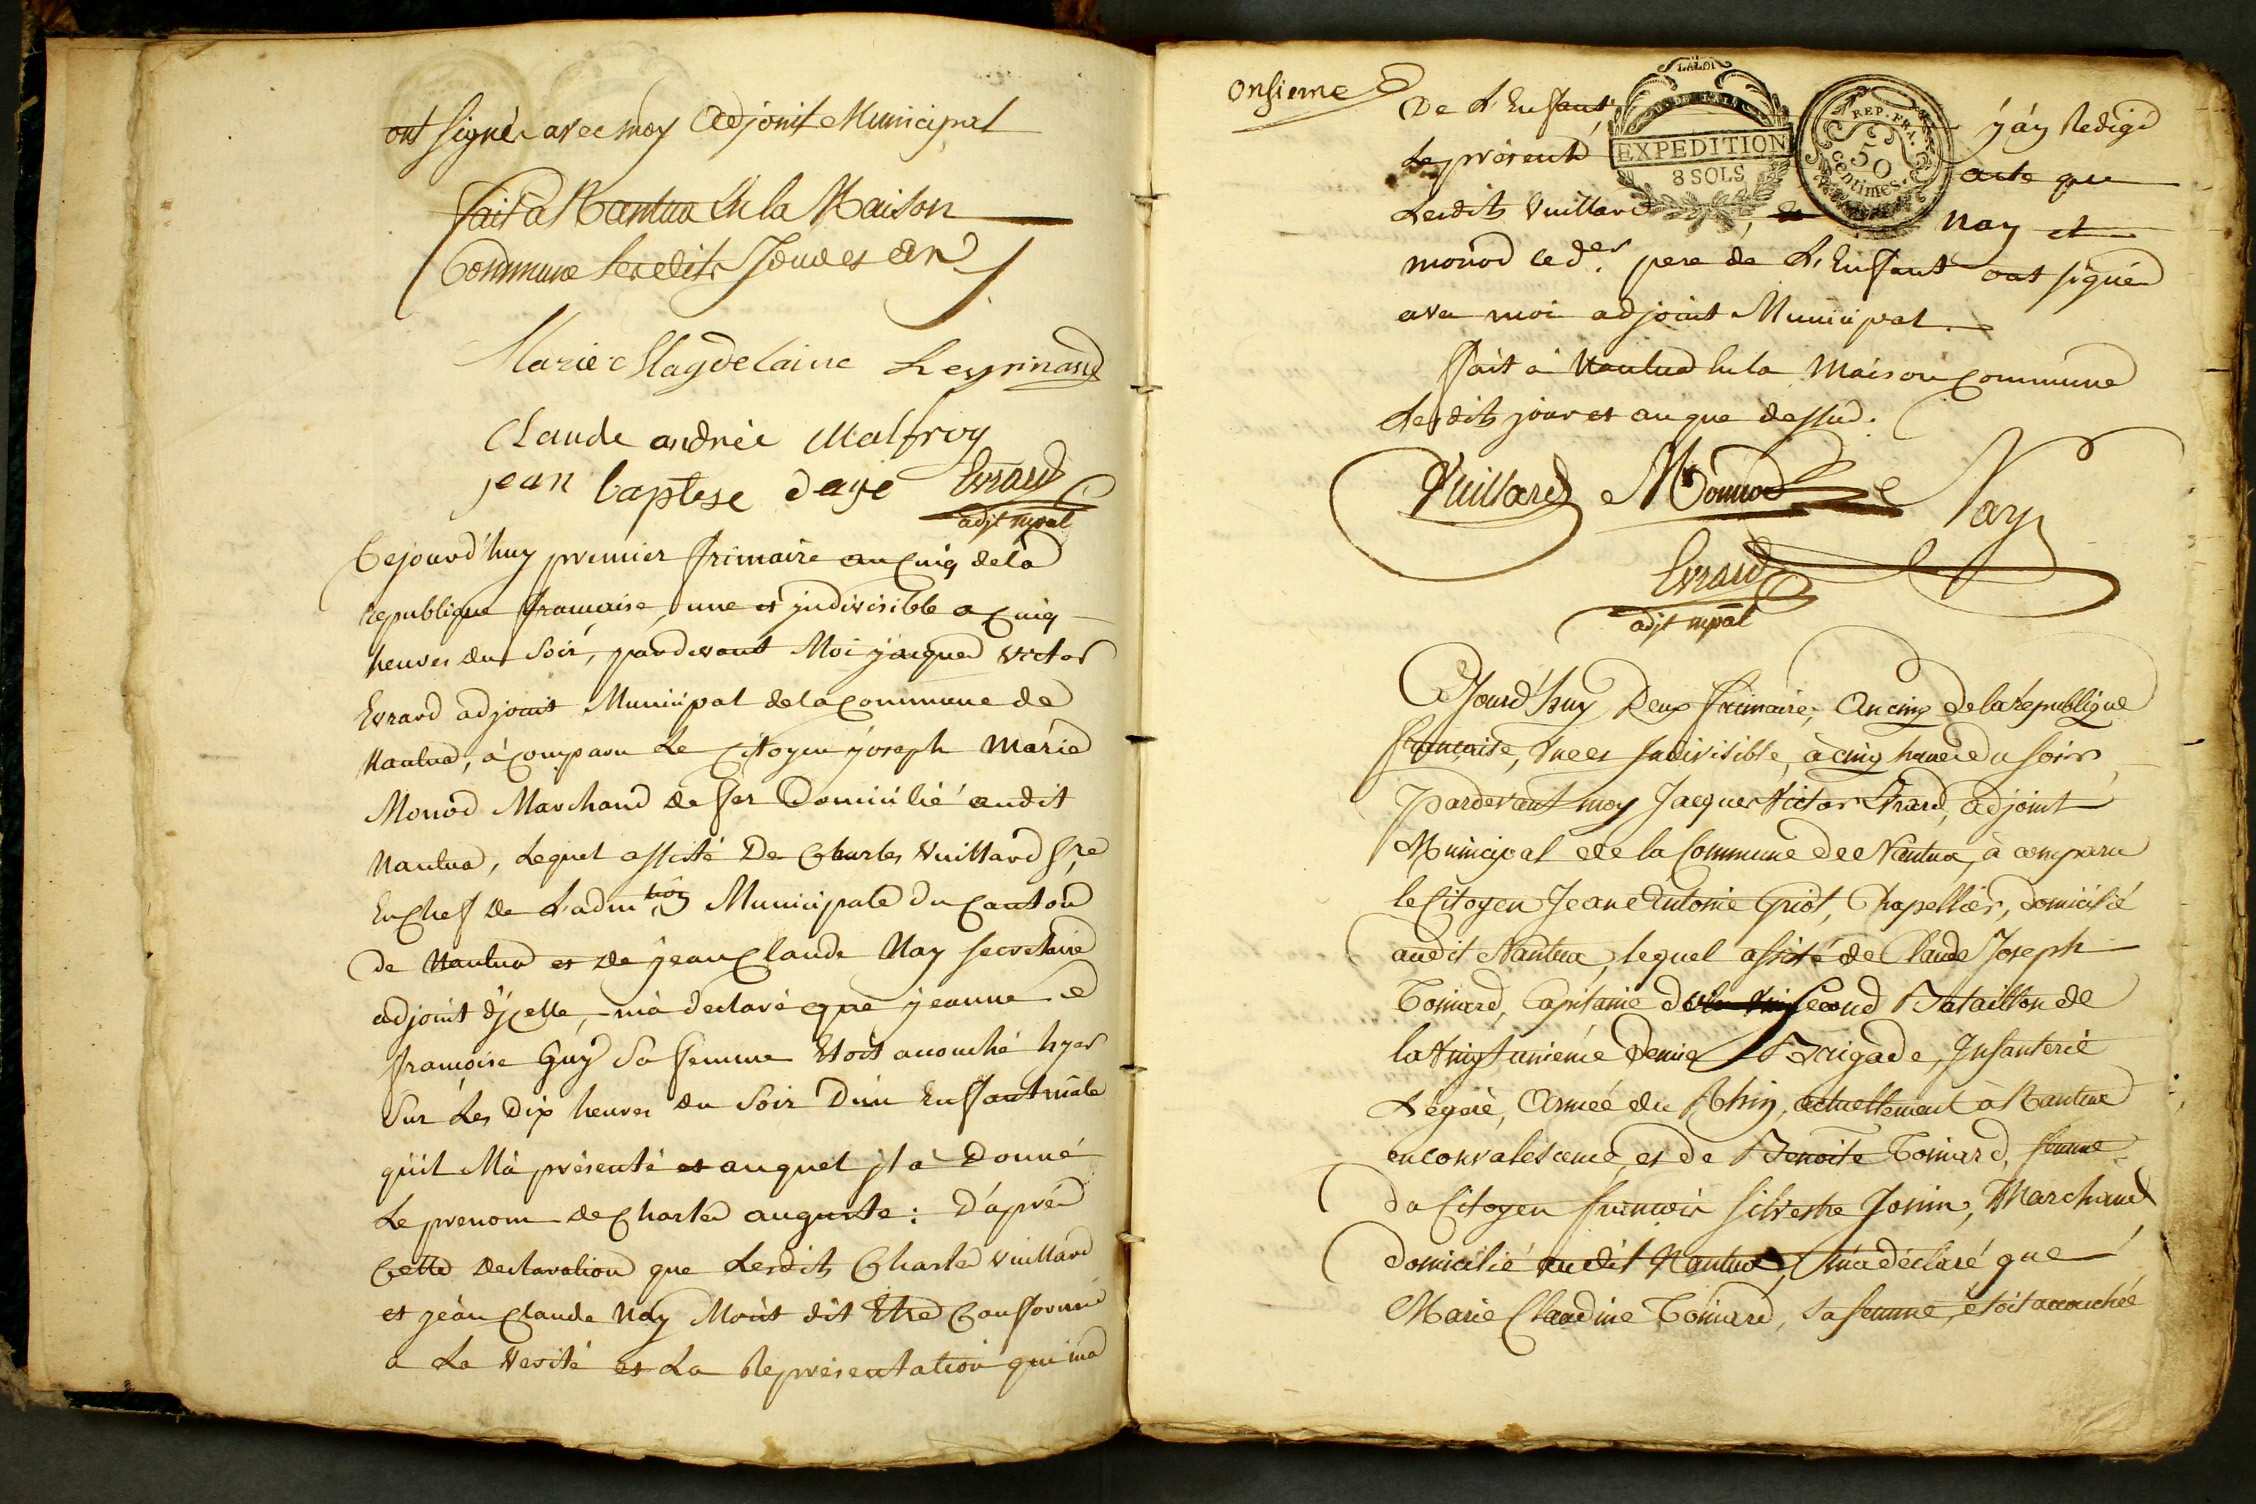 ont signé avec moy Adjoint Municipal
fait à Nantua En la Maison
Commune Lesdits Jour et an
Marie Magdelaine Reymond
Claude andrée Malfroy
jean baptese daye Evrard
adjt mpal
Cejourd'huy premier frimaire an Cinq de la
republique française, une et jndivisible a Cinq
heures du Soir, pardevant Moi jacques Victor
Evrard adjoint Municipal de la Commune de
Nantua, à Comparu Le Citoyen joseph Marie
Monod Marchand de fer Domicilié audit
Nantua, Lequel assisté De Charles Vuillard Sre
En Chef de L'admtion Municipale du Canton
de Nantua et de jean Claude Nay secretaire
adjoint d'jcelle, m'a declaré que jeanne
françoise Guy Sa femme Etoit accouché hyer
Sur Les Dix heures du Soir D'un Enfant mâle
qu'il M'à présenté et auquel jl a Donné
Le prenom de Charles auguste : D'après
Cette declaration que Lesdits Charles Vuillard
et jean Claude Nay M'ont dit Etre Conforme
a La Verité et La Représentation qui m'a
Onsieme
De L'Enfant j'ay Redigé
Le présent acte que
Lesdits Vuillard, Nay et
monod ce der pere de L'Enfant ont signé
avec moi adjoint Municipal.
fait à Nantua En la Maison Commune
Lesdits jour et an que dessus.
LA LOI
EXPEDITION
8 SOLS
REP. FRA.
50
centimes.
Vuillard Monod Nay
Evrard
adjt mpal
Cejourd'huy Deux frimaire, An cinq de la république
française, Une et Indivisible, à cinq heures du soir,
pardevant moy Jacques Victor Evrard, adjoint
Municipal de la Commune de Nantua, à comparu
le Citoyen Jean Antoine Griot, Chapellier, domicilié
audit Nantua, lequel assisté de Claude Joseph
Toinard, Capitaine Second Bataillon de
la Vingt unieme Demie Brigade, Infanterie
Légere, Armée du Rhin, actuellement à Nantua
en convalescence, et de Benoite Toinard, femme
du Citoyen françois Silvestre Jonin, Marchand
domicilié audit Nantua, m'a déclaré que
Marie Claudine Toinard, sa femme, étoit accouchée